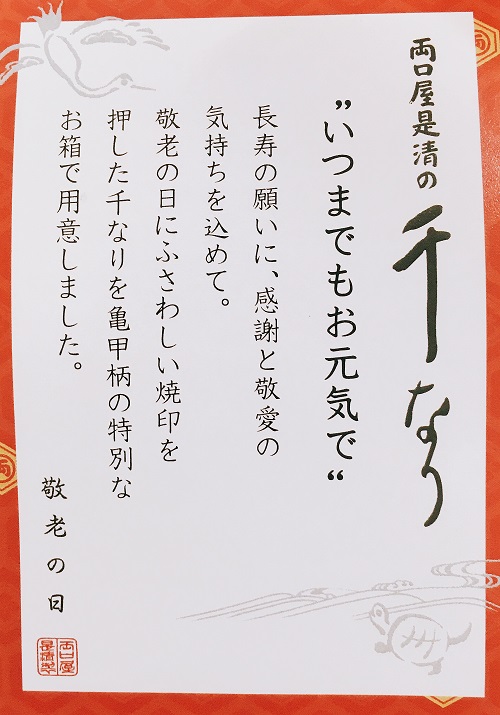 両口屋是清の
千なり
"いつまでもお元気で"
長寿の願いに、感謝と敬愛の
気持ちを込めて。
敬老の日にふさわしい焼印を
押した千なりを亀甲柄の特別な
お箱で用意しました。
敬老の日
両口屋
是清製
両
両